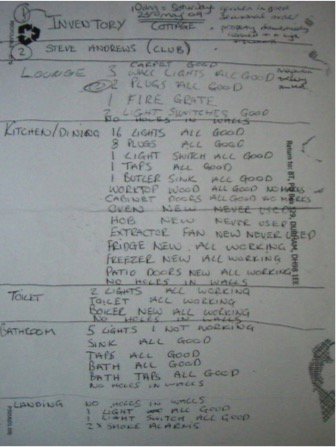 1 INVENTORY
COTTAGE
2 STEVE ANDREWS (CLUB)
LOUNGE
CARPET GOOD
3 WALL LIGHTS ALL GOOD
2 PLUGS ALL GOOD
1 FIRE GRATE
1 LIGHT SWITCHES GOOD
NO HOLES IN WALLS
KITCHEN/DINING 16 LIGHTS ALL GOOD
8 PLUGS ALL GOOD
1 LIGHT SWITCH ALL GOOD
1 TAPS ALL GOOD
1 BUTLER SINK ALL GOOD
WORKTOP WOOD ALL GOOD NO MARKS
CABINET DOORS ALL GOOD NO MARKS
OVEN NEW NEVER USED
HOB NEW NEVER USED
EXTRACTOR FAN NEW NEVER USED
FRIDGE NEW ALL WORKING
FREEZER NEW ALL WORKING
PATIO DOORS NEW ALL WORKING
NO HOLES IN WALLS
TOILET 2 LIGHTS ALL WORKING
TOILET ALL WORKING
BOILER NEW ALL WORKING
NO HOLES IN WALLS
BATHROOM 5 LIGHTS 1 NOT WORKING
SINK ALL GOOD
TAPS ALL GOOD
BATH ALL GOOD
BATH TAPS ALL GOOD
NO HOLES IN WALLS
LANDING NO HOLES IN WALLS
1 LIGHT ALL GOOD
1 LIGHT SWITCH ALL GOOD
2X SMOKE ALARMS
Return to: BT, DURHAM